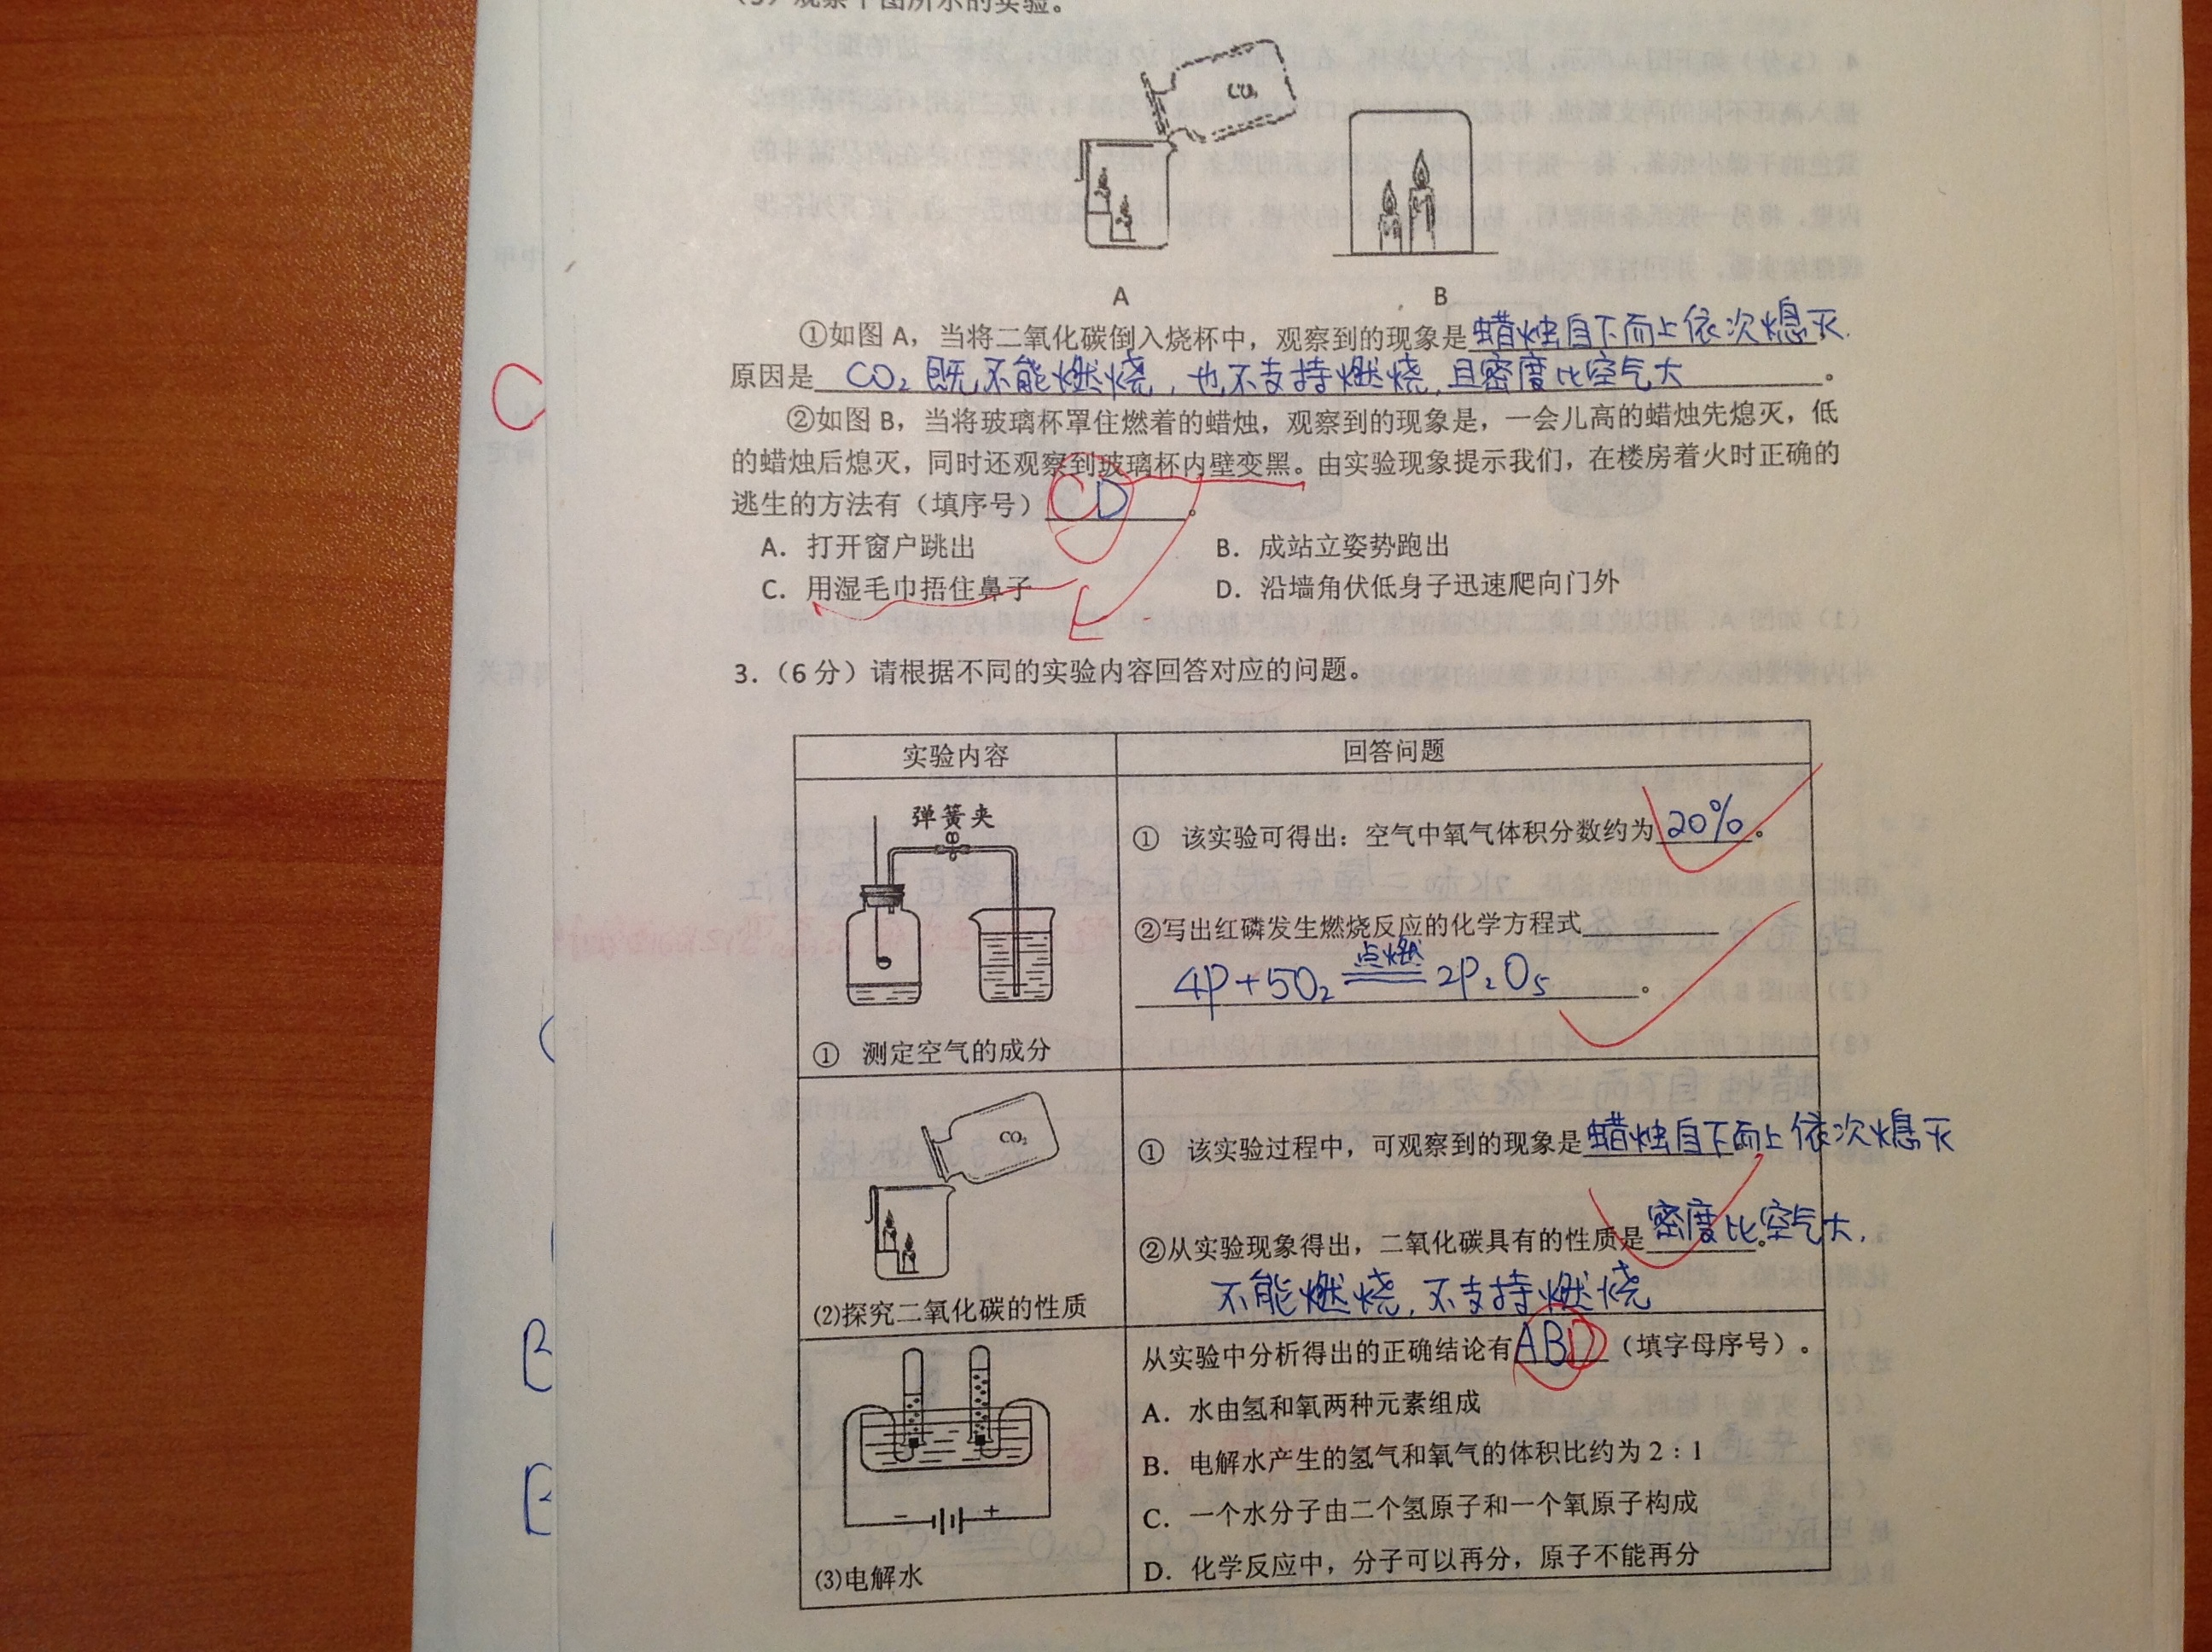 （3）观察下图所示的实验。
CO₂
A B
①如图 A，当将二氧化碳倒入烧杯中，观察到的现象是蜡烛自下而上依次熄灭.
原因是 CO₂ 既不能燃烧，也不支持燃烧，且密度比空气大。
②如图 B，当将玻璃杯罩住燃着的蜡烛，观察到的现象是，一会儿高的蜡烛先熄灭，低
的蜡烛后熄灭，同时还观察到玻璃杯内壁变黑。由实验现象提示我们，在楼房着火时正确的
逃生的方法有（填序号）CD。
A．打开窗户跳出 B．成站立姿势跑出
C．用湿毛巾捂住鼻子 D．沿墙角伏低身子迅速爬向门外
C
3．（6 分）请根据不同的实验内容回答对应的问题。
实验内容 回答问题
弹簧夹
① 测定空气的成分
① 该实验可得出：空气中氧气体积分数约为20%。
②写出红磷发生燃烧反应的化学方程式
点燃
4P+5O₂ ══ 2P₂O₅。
CO₂
(2)探究二氧化碳的性质
① 该实验过程中，可观察到的现象是蜡烛自下而上依次熄灭
②从实验现象得出，二氧化碳具有的性质是密度比空气大，
不能燃烧，不支持燃烧
− +
(3)电解水
从实验中分析得出的正确结论有ABD（填字母序号）。
A．水由氢和氧两种元素组成
B．电解水产生的氢气和氧气的体积比约为 2：1
C．一个水分子由二个氢原子和一个氧原子构成
D．化学反应中，分子可以再分，原子不能再分